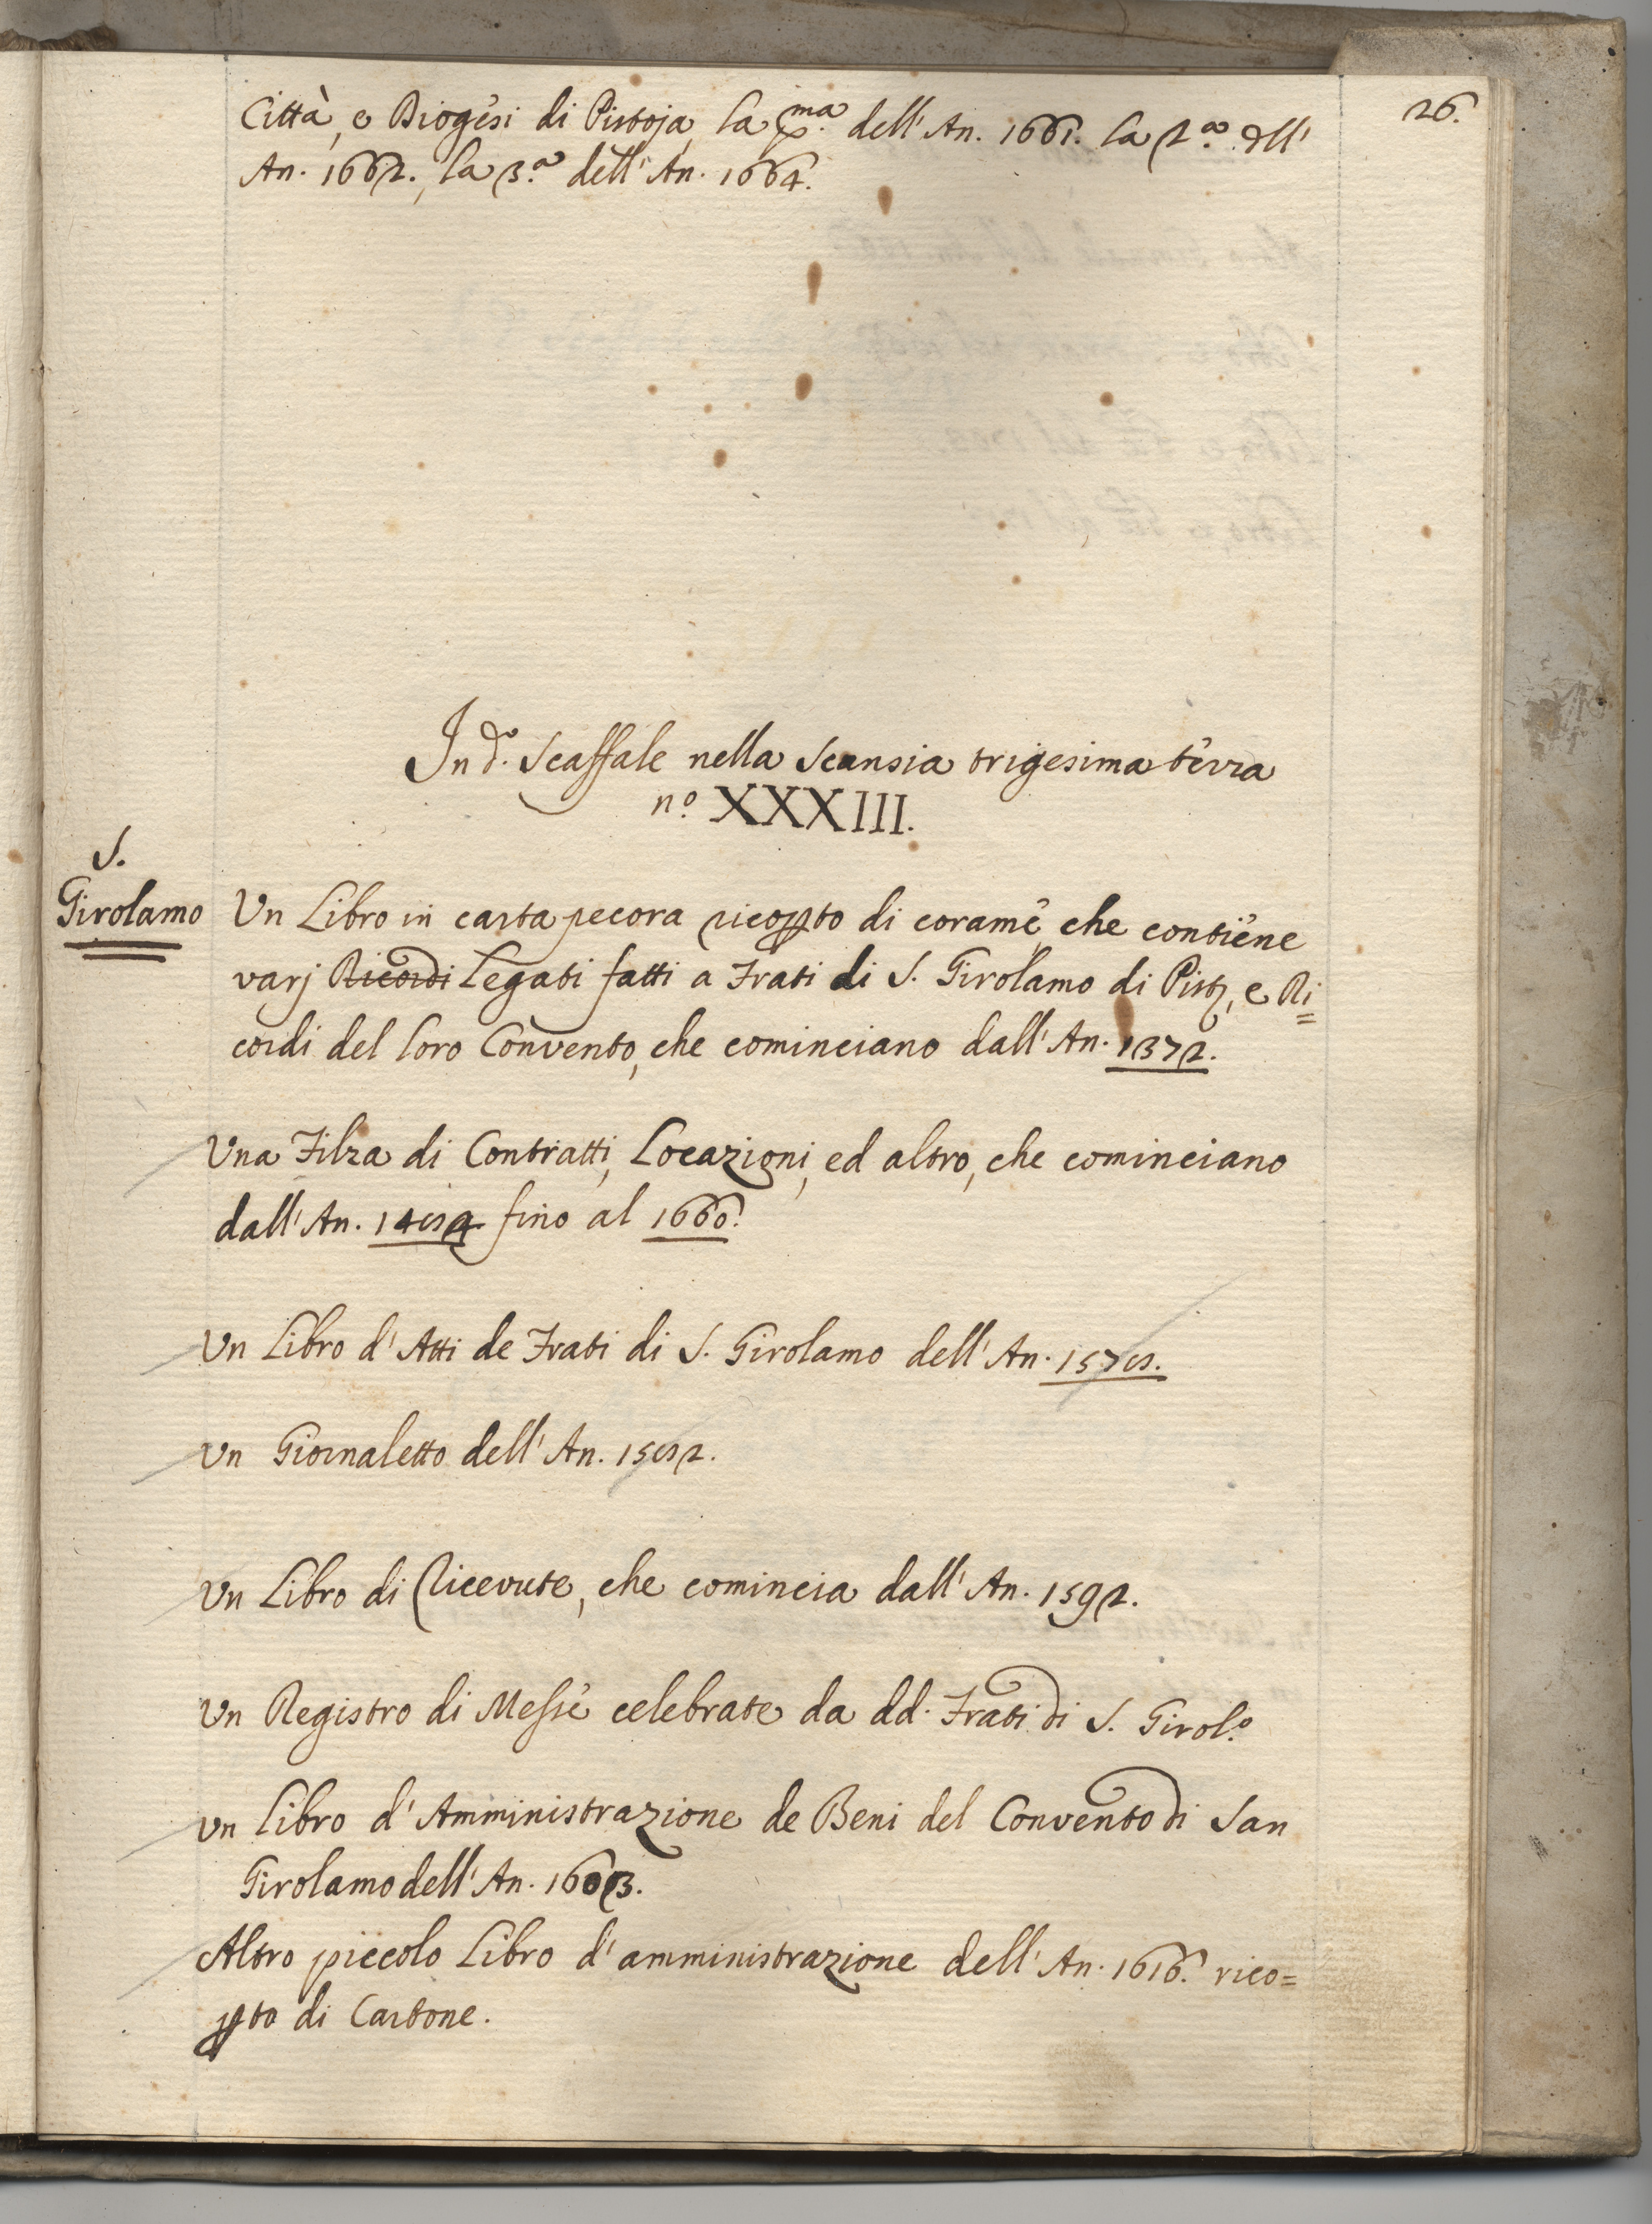 26.
Città, e Diogesi di Pistoja, la pma. dell' An. 1661. la 2.a dell'
An. 1662. la 3.a dell' An. 1664.
In d.o Scaffale nella Scansia trigesima terza
n.o XXXIII.
S.
Girolamo
Un Libro in carta pecora ricopto di corame che contiene
varj Ricordi Legati fatti a Frati di S. Girolamo di Pist, e Ri=
cordi del loro Convento, che cominciano dall' An. 1372.
Una Filza di Contratti, Locazioni, ed altro, che cominciano
dall' An. fino al 1660.
Un Libro d' Atti de Frati di S. Girolamo dell' An. 1578.
Un Giornaletto dell' An. 1582.
Un Libro di Ricevute, che comincia dall' An. 1592.
Un Registro di Messe celebrate da dd. Frati di S. Girol.o
Un Libro d' Amministrazione de Beni del Convento di San
Girolamo dell' An. 1603.
Altro piccolo Libro d' amministrazione dell' An. 1616. rico=
pto di Cartone.